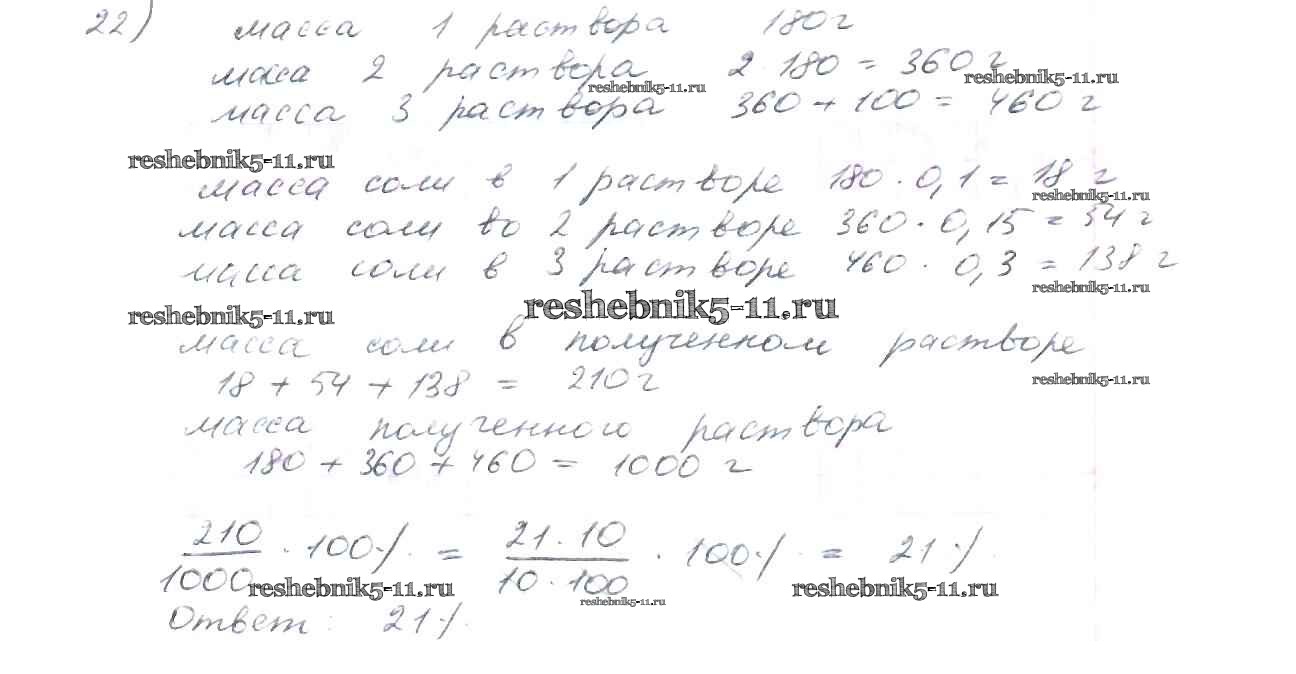 22) масса 1 раствора 180 г
масса 2 раствора 2·180 = 360 г
reshebnik5-11.ru
reshebnik5-11.ru
масса 3 раствора 360 + 100 = 460 г
reshebnik5-11.ru
масса соли в 1 растворе 180 · 0,1 = 18 г
reshebnik5-11.ru
масса соли во 2 растворе 360 · 0,15 = 54 г
масса соли в 3 растворе 460 · 0,3 = 138 г
reshebnik5-11.ru
reshebnik5-11.ru
reshebnik5-11.ru
масса соли в полученном растворе
18 + 54 + 138 = 210 г
reshebnik5-11.ru
масса полученного раствора
180 + 360 + 460 = 1000 г
210/1000 · 100% = 21·10/10·100 · 100% = 21%
reshebnik5-11.ru
reshebnik5-11.ru
reshebnik5-11.ru
Ответ: 21%.